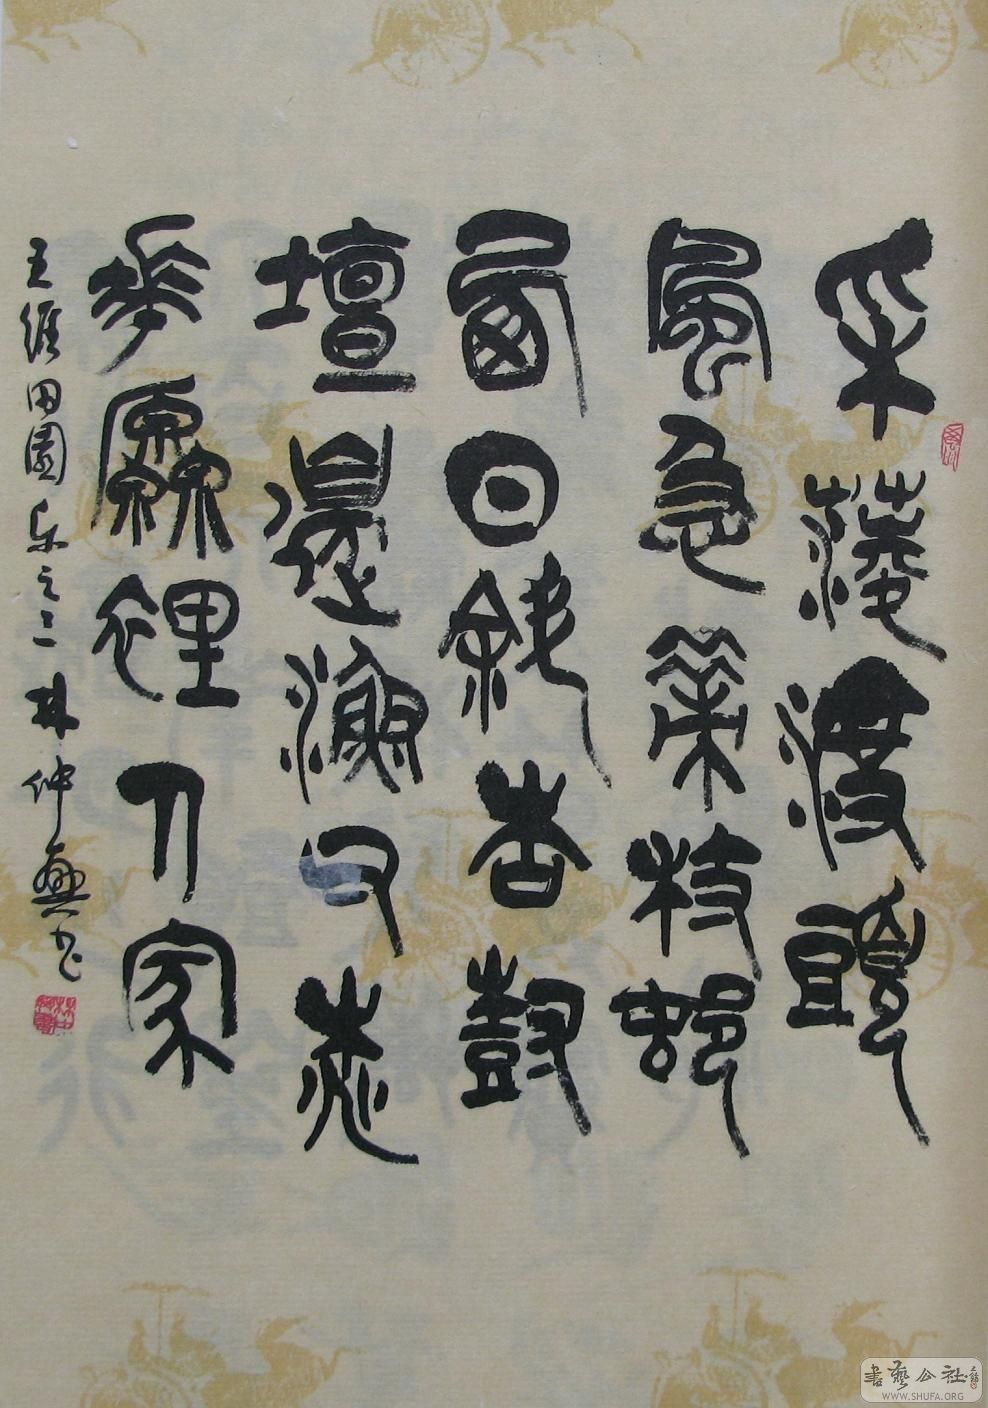 采菱渡頭
風急策杖邨
西日斜杏樹
壇邊漁父桃
華源裡人家
王維田園乐之三 林仲興书
書藝公社
WWW.SHUFA.ORG